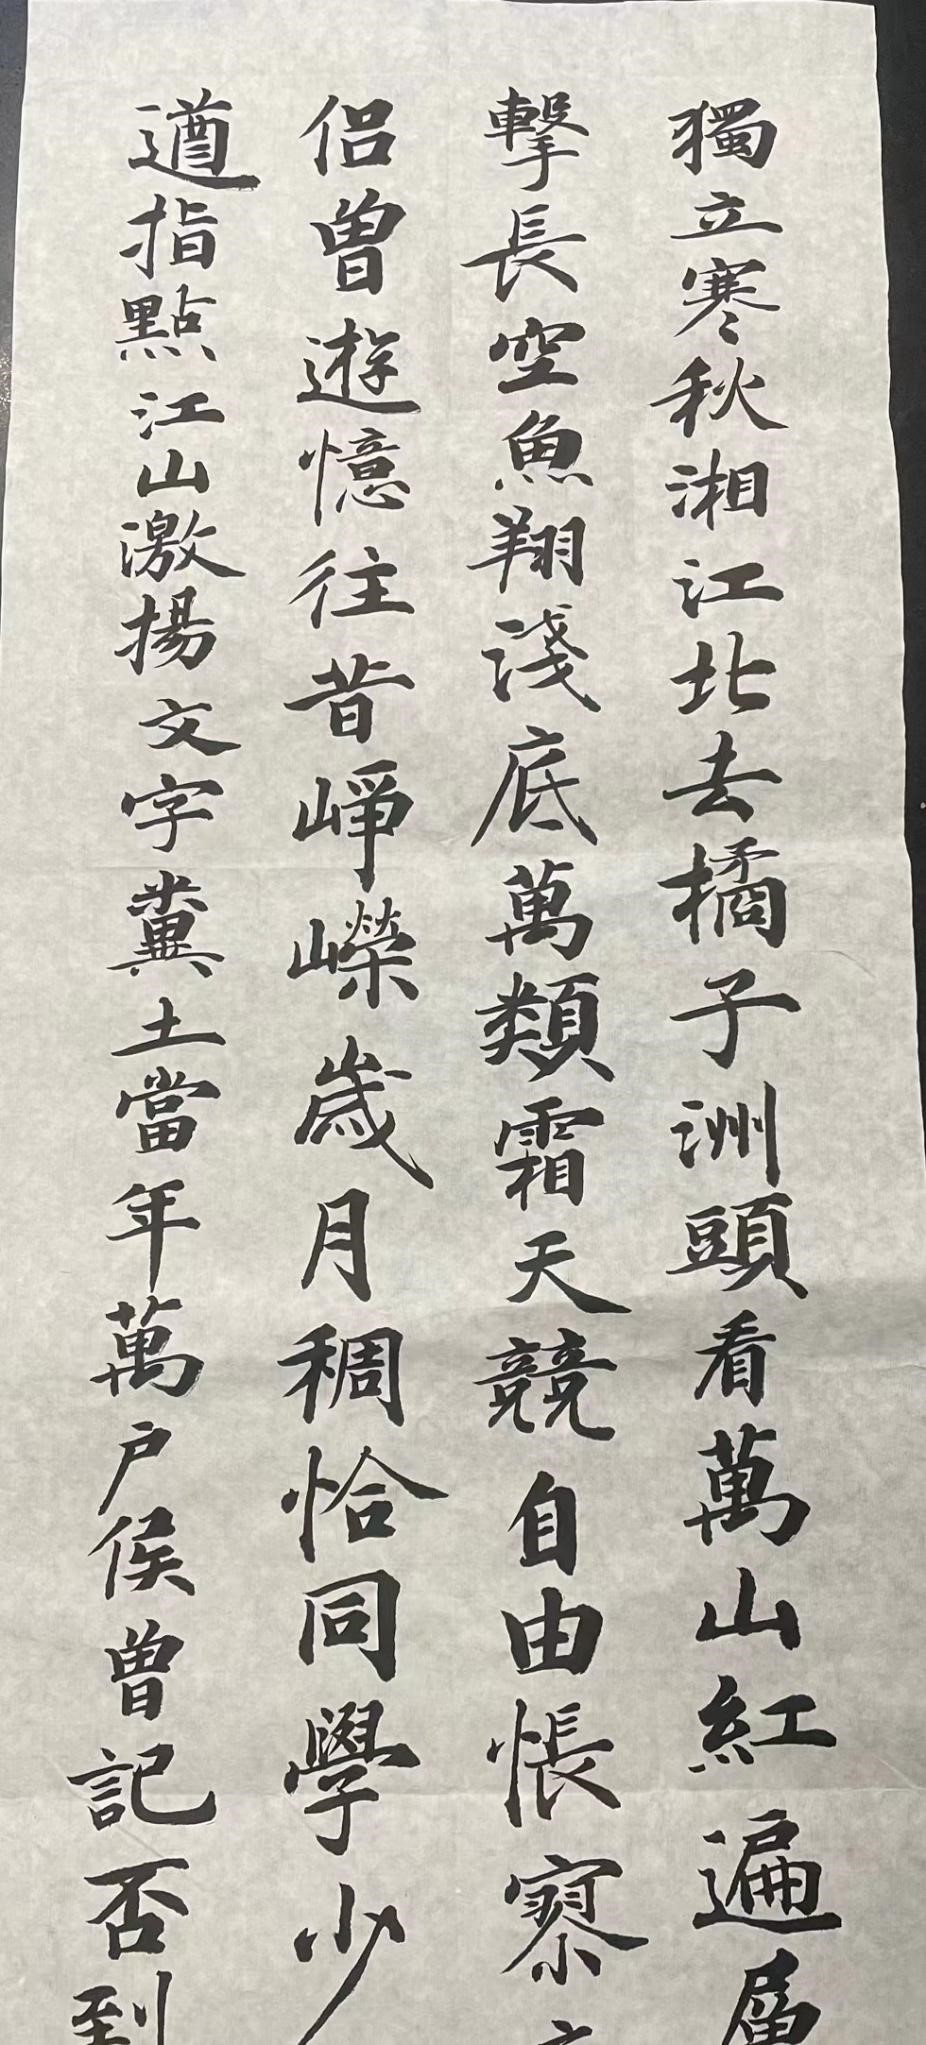 獨立寒秋湘江北去橘子洲頭看萬山紅遍層
擊長空魚翔淺底萬類霜天競自由悵寥
侣曾遊憶往昔崢嶸歲月稠恰同學少
遒指點江山激揚文字糞土當年萬户侯曾記否到